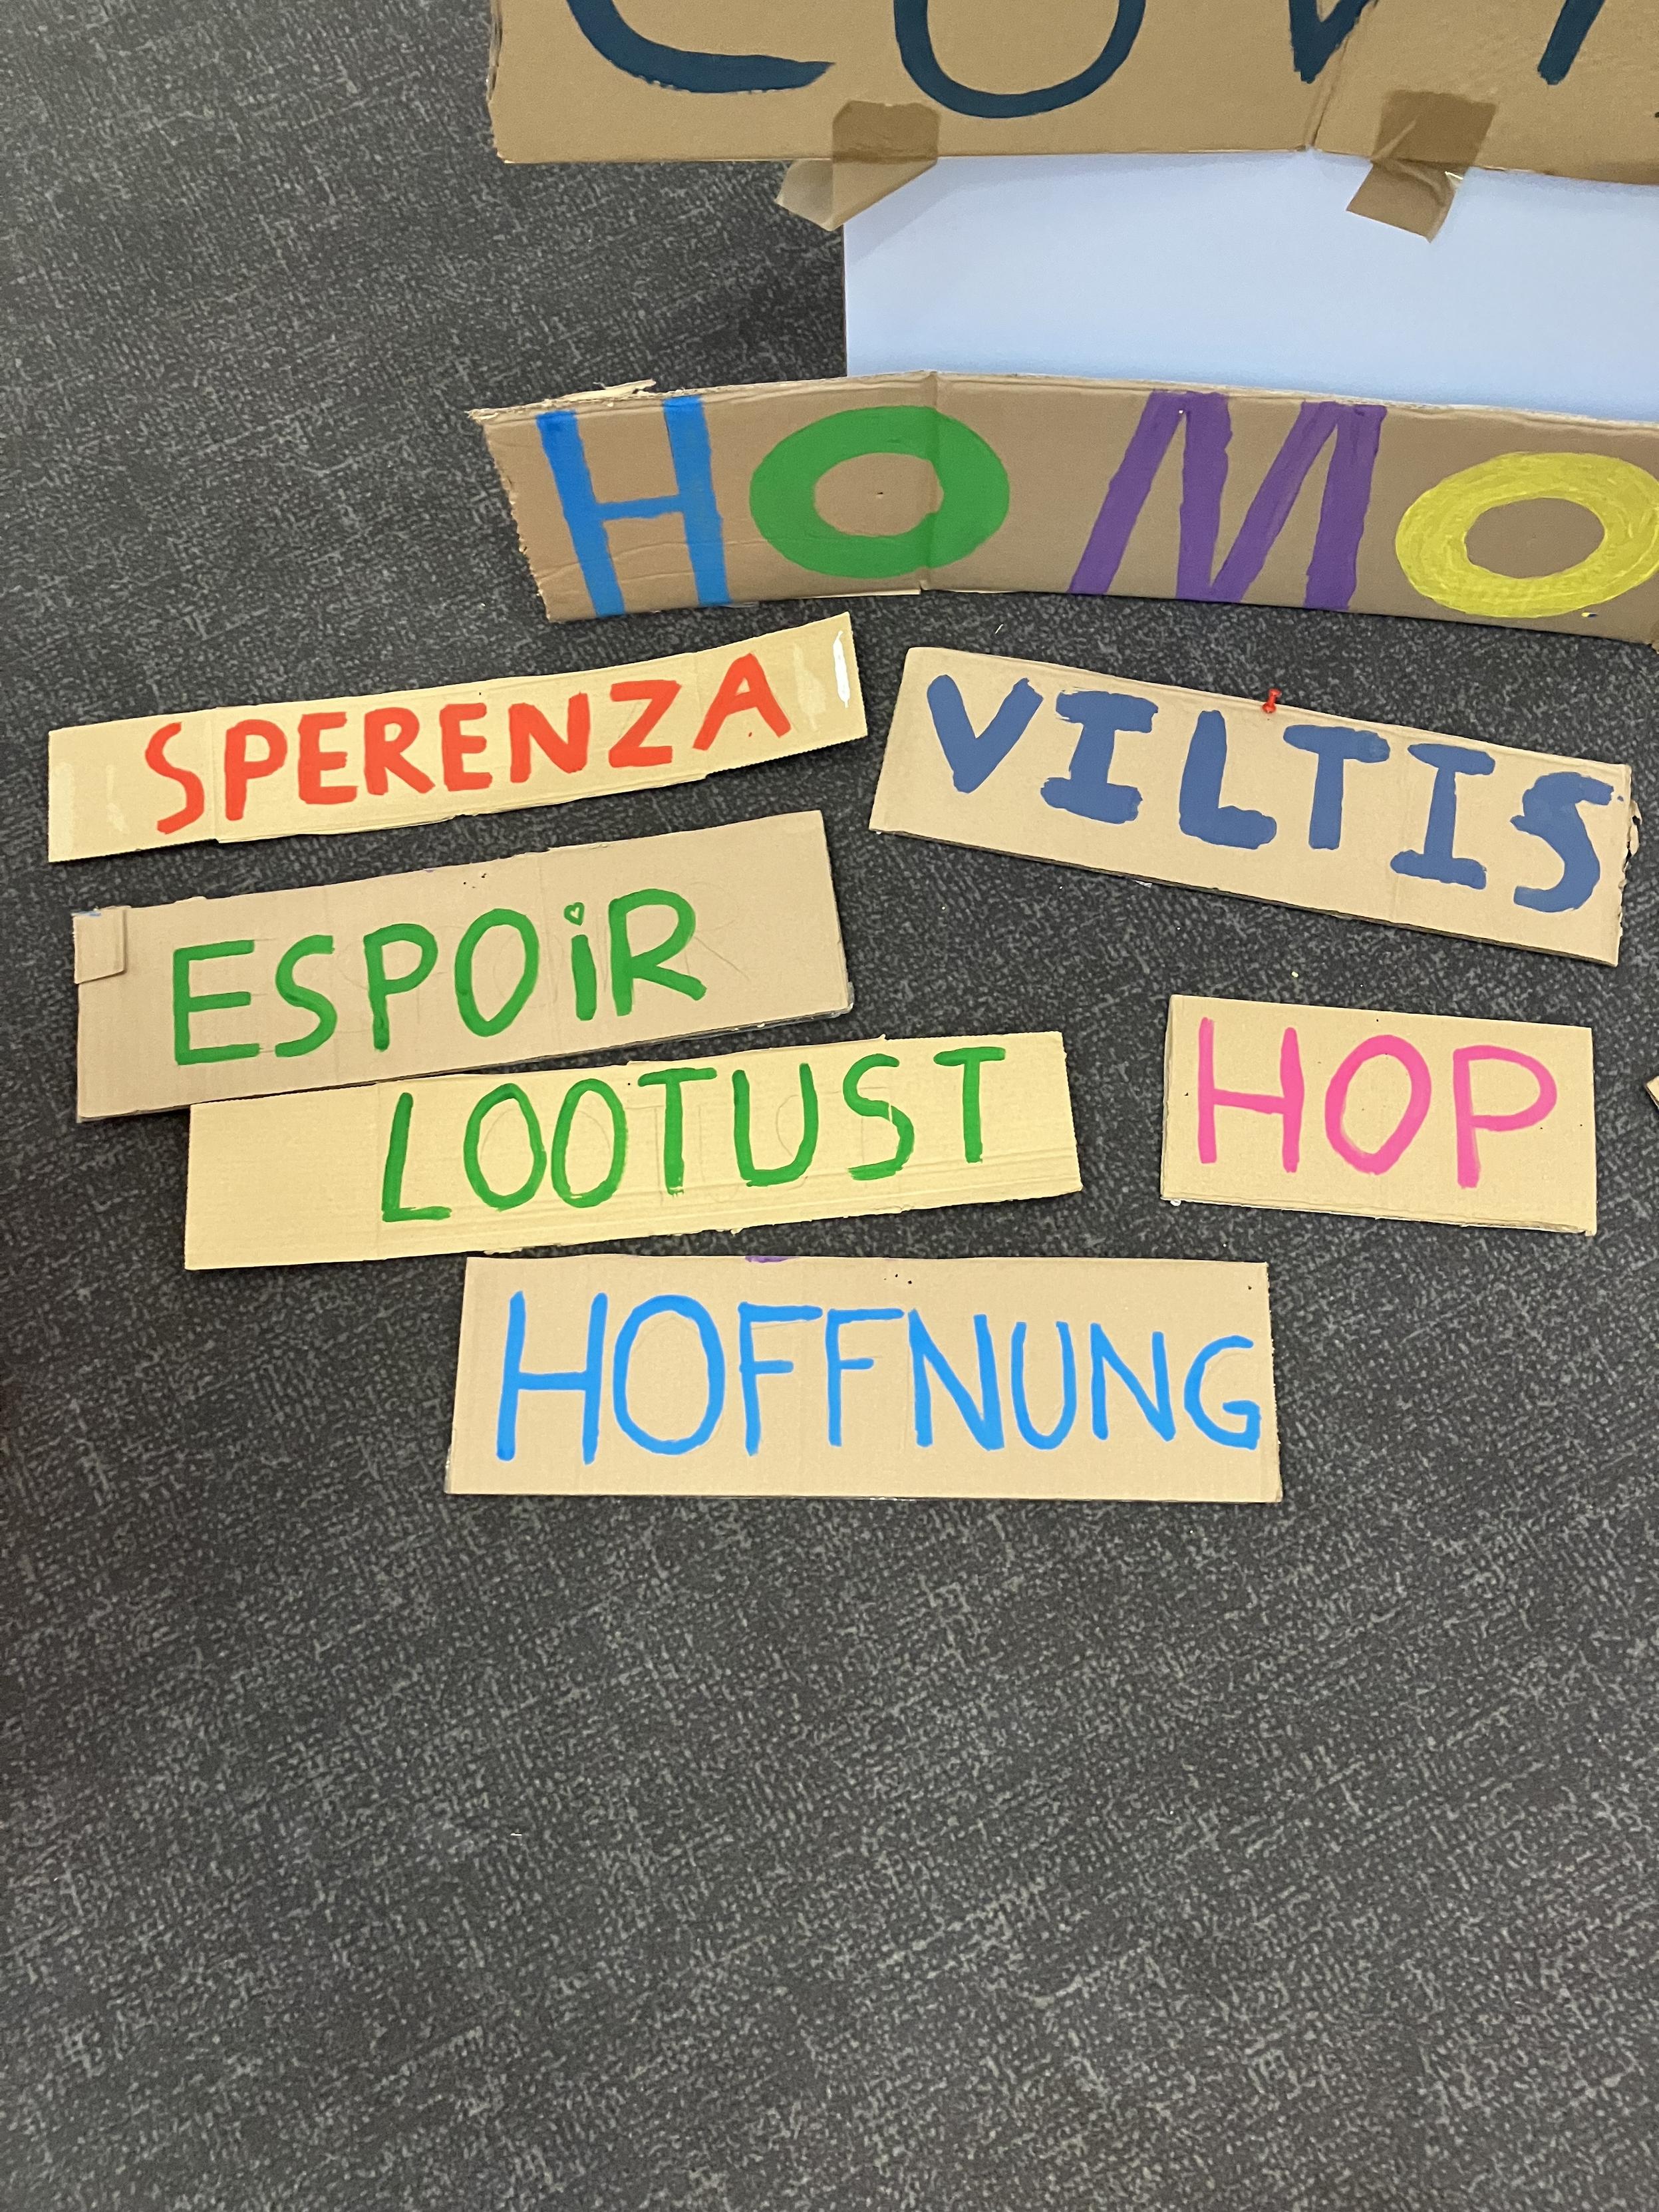 HOMO
SPERENZA
VILTIS
ESPOiR
LOOTUST
HOP
HOFFNUNG